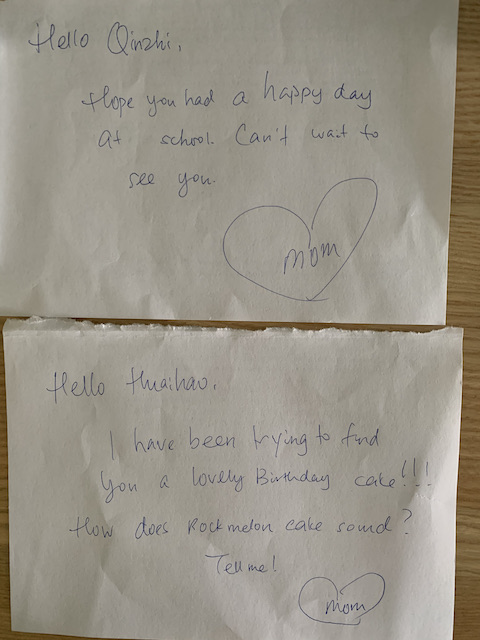 Hello Qinzhi,
Hope you had a happy day
at school. Can't wait to
see you.
mom
Hello Huaihao,
I have been trying to find
you a lovely Birthday cake!!!
How does Rockmelon cake sound?
Tell me!
mom